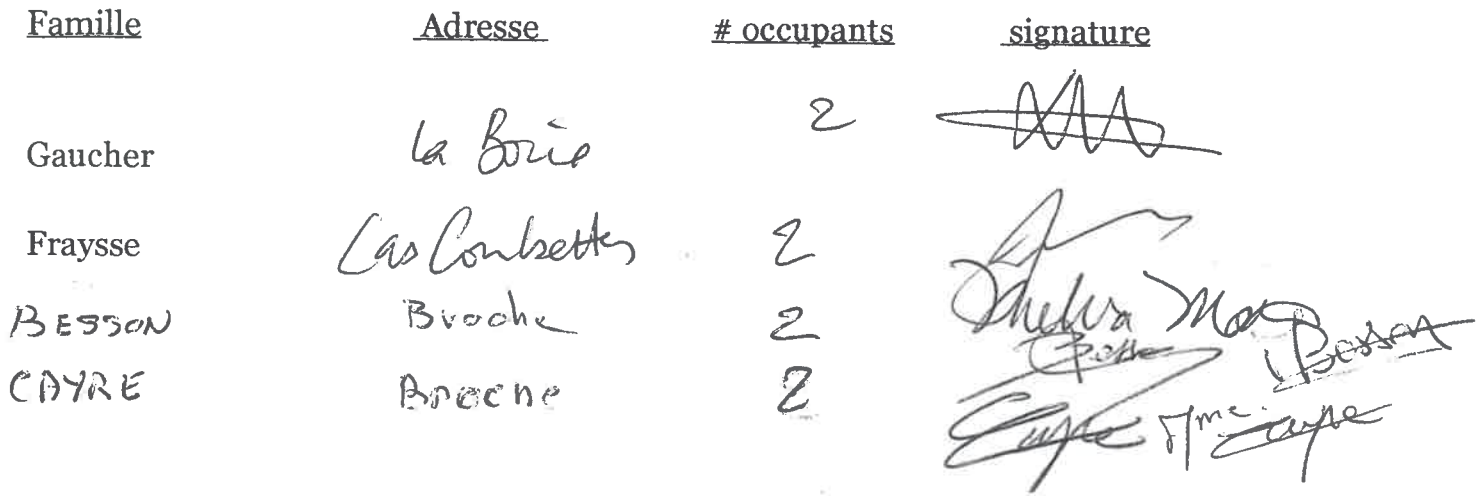 Famille Adresse # occupants signature
Gaucher la Borie 2
Fraysse Las Combettes 2
BESSON Broche 2 Besson
CAYRE Broche 2 Cayre Mme Cayre